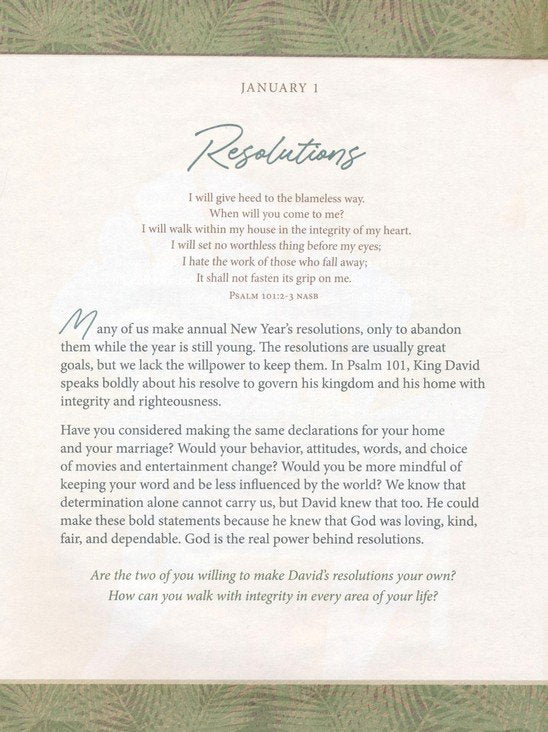 JANUARY 1
Resolutions
I will give heed to the blameless way.
When will you come to me?
I will walk within my house in the integrity of my heart.
I will set no worthless thing before my eyes;
I hate the work of those who fall away;
It shall not fasten its grip on me.
Psalm 101:2-3 NASB
Many of us make annual New Year's resolutions, only to abandon
them while the year is still young. The resolutions are usually great
goals, but we lack the willpower to keep them. In Psalm 101, King David
speaks boldly about his resolve to govern his kingdom and his home with
integrity and righteousness.
Have you considered making the same declarations for your home
and your marriage? Would your behavior, attitudes, words, and choice
of movies and entertainment change? Would you be more mindful of
keeping your word and be less influenced by the world? We know that
determination alone cannot carry us, but David knew that too. He could
make these bold statements because he knew that God was loving, kind,
fair, and dependable. God is the real power behind resolutions.
Are the two of you willing to make David's resolutions your own?
How can you walk with integrity in every area of your life?